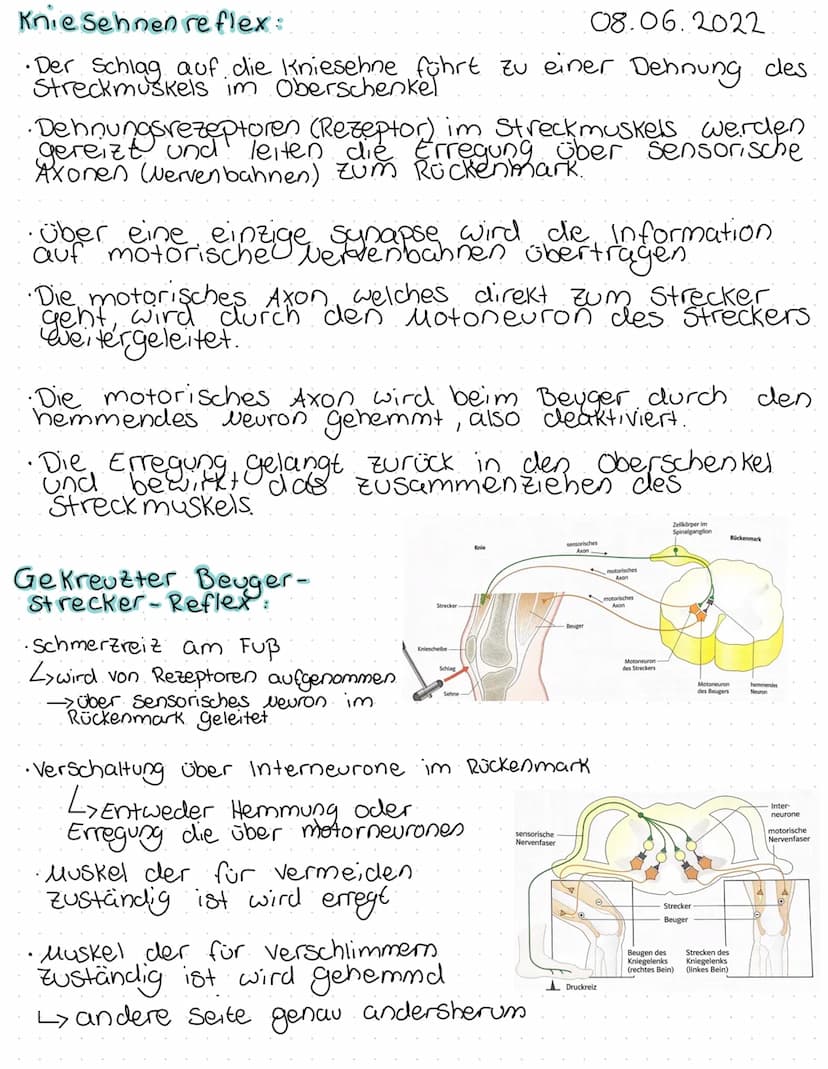 Kniesehnenreflex:
08.06.2022
·Der Schlag auf die Kniesehne führt zu einer Dehnung des
Streckmuskels im Oberschenkel
·Dehnungsrezeptoren (Rezeptor) im Streckmuskels werden
gereizt und leiten die Erregung über sensorische
Axonen (Nervenbahnen) zum Rückenmark.
·Über eine einzige Synapse wird die Information
auf motorische Nervenbahnen übertragen
·Die motorisches Axon, welches direkt zum Strecker
geht, wird durch den Motoneuron des Streckers
weitergeleitet.
·Die motorisches Axon wird beim Beuger durch den
hemmendes Neuron gehemmt, also deaktiviert.
·Die Erregung gelangt zurück in den Oberschenkel
und bewirkt das zusammenziehen des
Streckmuskels.
Knie
sensorisches
Axon
Zellkörper im
Spinalganglion
Rückenmark
motorisches
Axon
motorisches
Axon
Strecker
Beuger
Kniescheibe
Schlag
Sehne
Motoneuron
des Streckers
Motoneuron
des Beugers
hemmendes
Neuron
Gekreuzter Beuger-
strecker-Reflex:
·Schmerzreiz am Fuß
↳wird von Rezeptoren aufgenommen
→über sensorisches Neuron im
Rückenmark geleitet
·Verschaltung über Interneurone im Rückenmark
↳Entweder Hemmung oder
Erregung die über motorneurones
·Muskel der für vermeiden
zuständig ist wird erregt
·Muskel der für verschlimmern
zuständig ist wird gehemmd
↳ andere Seite genau andersherum
sensorische
Nervenfaser
Inter-
neurone
motorische
Nervenfaser
Strecker
Beuger
Beugen des
Kniegelenks
(rechtes Bein)
Strecken des
Kniegelenks
(linkes Bein)
Druckreiz